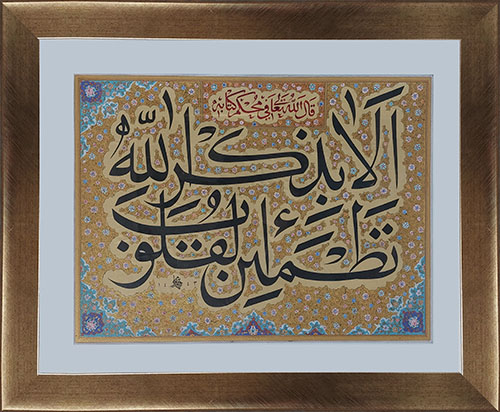 قال الله تعالى في محكم كتابه
أَلَا بِذِكْرِ اللّٰهِ
تَطْمَئِنُّ الْقُلُوبُ